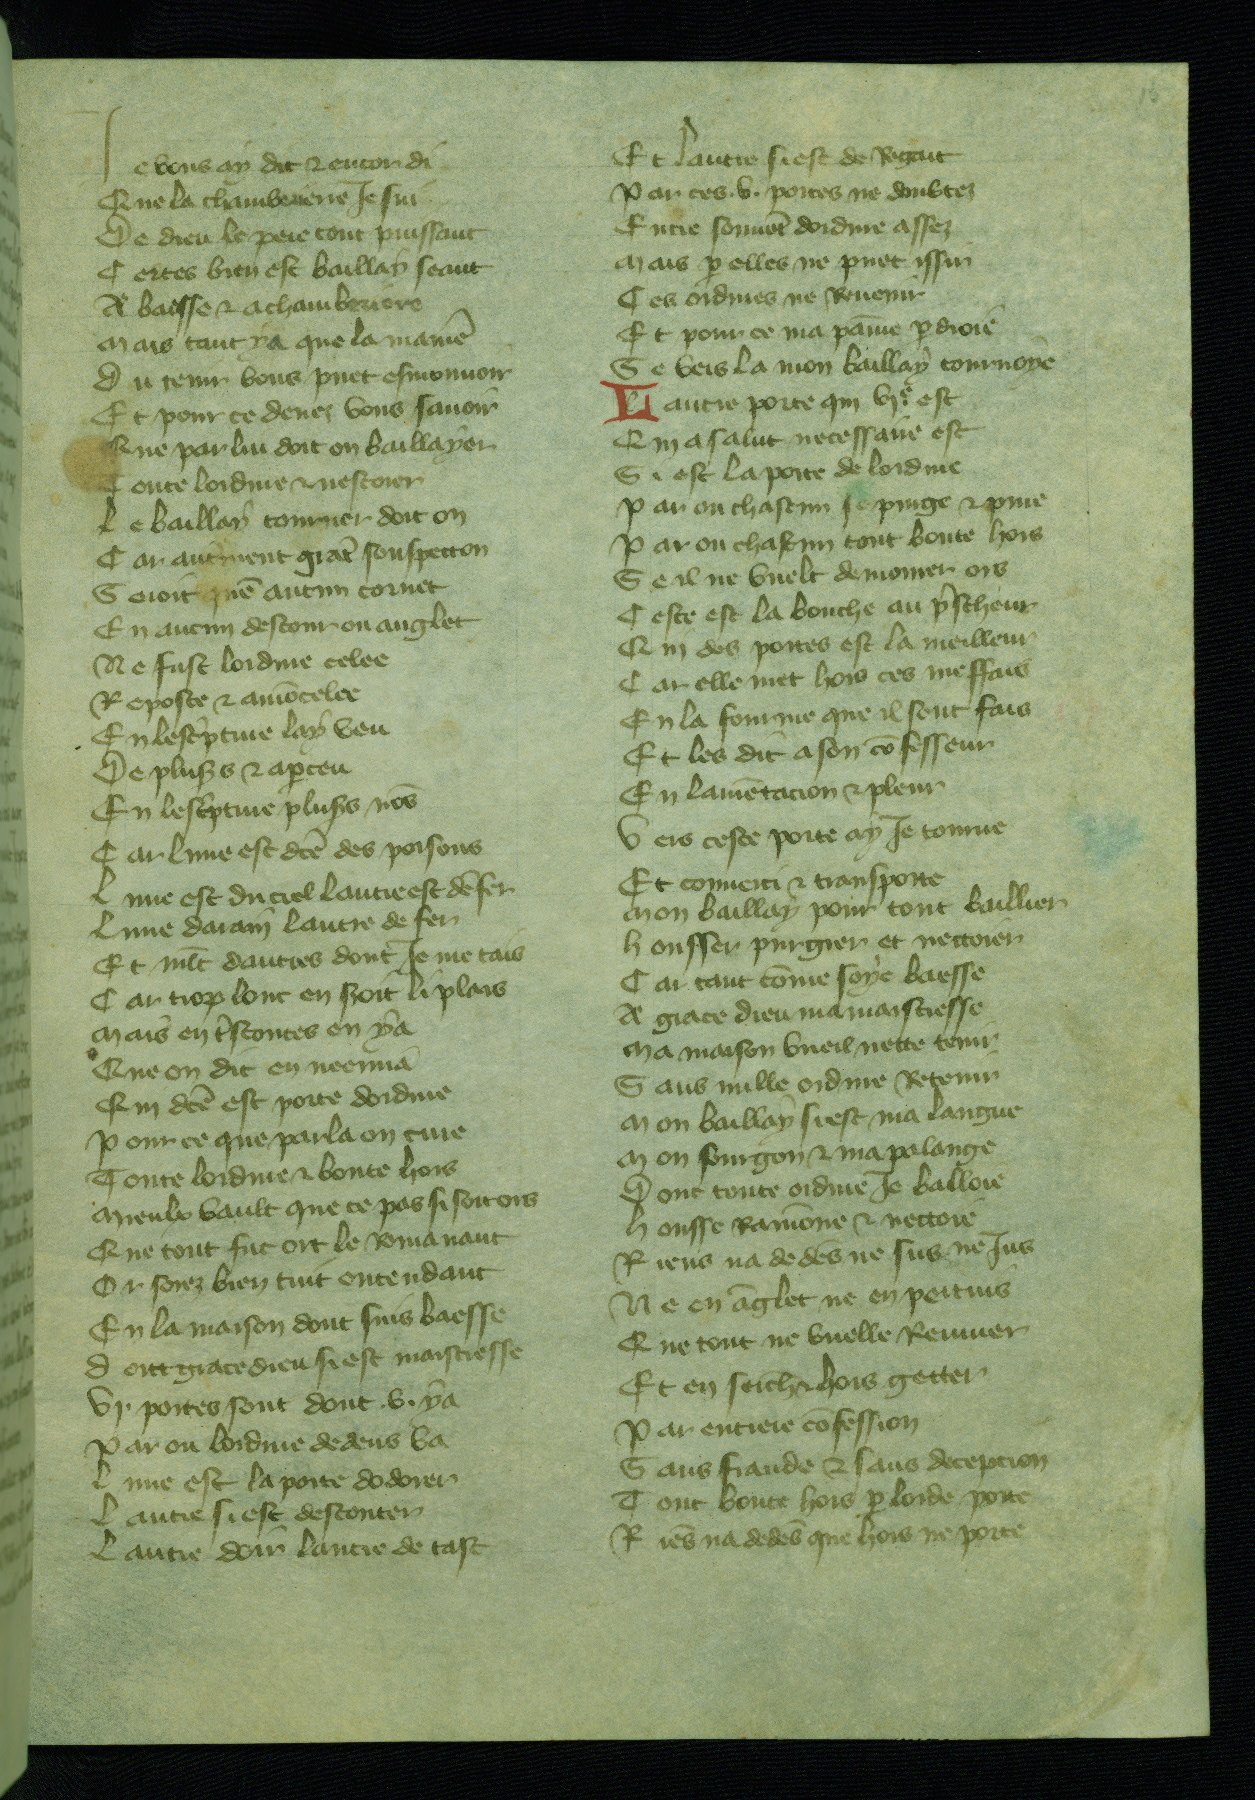 Je vous ay dit & encor di
Que la chamberiere Je sui
De dieu le pere tout puissant
Certes bien est baillay seant
A baesse & a chamberiere
Mais tant ya que la maniē
Du tenir vous puet esmouuoir
Et pour ce deuez vous sauoir
Que par lui doit on baillayer
Toute lordure & nestoier
Le baillay tourner doit on
Car autment grāt souspecton
Seroit quē aucun cornet
En aucun destour ou anglet
Ne fust lordure celee
Reposte & amōcelee
En lescpture lay veu
De plus's & apceu
En lescpture plus's nōs
Car lune est dcē des poisons
Lune est du ciel lautre est dēfer
Lune darain lautre de fer
Et mlt dautres dont Je me tais
Car trop lonc en s'oit li plais
Mais en t'stoutes en ya
Que on dit en neemiā
Qui dcē est porte dordure
Pour ce que par la on cure
Toute lordure & boute hors
Mieulx vault que ce pas si soit ors
Que tout fut ort le romanant
Or soiez bien tuit entendant
En la maison dont suis baesse
Dont grace dieu si est maistresse
Vj. portes sont dont .v. ya
Par ou lordure dedens va
Lune est la porte dodorer
Lautre si est descouter
Lautre doir lautre de tast
Et lautre si est de Regart
Par ces .v. portes ne doubtez
Entre souuēt dordure assez
Mais p elles ne puet issir
Ces ordures ne Reuenir
Et pour ce ma pāine pdroiē
Se vers la mon baillay tournoye
Lautre porte qui vje est
Qui a salut necessaire est
Si est la porte de lordure
Par ou chascun se purge & pure
Par ou chascun tout boute hors
Se il ne vuelt demourer ors
Ceste est la bouche au p'scheur
Qui des portes est la meilleur
Car elle met hors ces meffais
En la fourme que il sont fais
Et les dit a son cōfesseur
En lamētacion & pleur
Vers ceste porte ay Je tourne
Et conuerti & transporte
Mon baillay pour tout baillier
Housser purgier et nettoier
Car tant cōme soye baesse
A grace dieu ma maistresse
Ma maison vueil nette tenir
Sans nulle ordure Retenir
Mon baillay si est ma langue
Mon fourgon & ma palange
Dont toute ordure Je balloie
Housse Ramōne & nettoie
Riens na dedēs ne sus ne Jus
Ne en āglet ne en pertuis
Que tout ne vuelle Remuer
Et en serche hors getter
Par entiere cōfession
Sans fraude & sans deception
Tout boute hors p lorde porte
Riēs na dedēs que hors ne porte